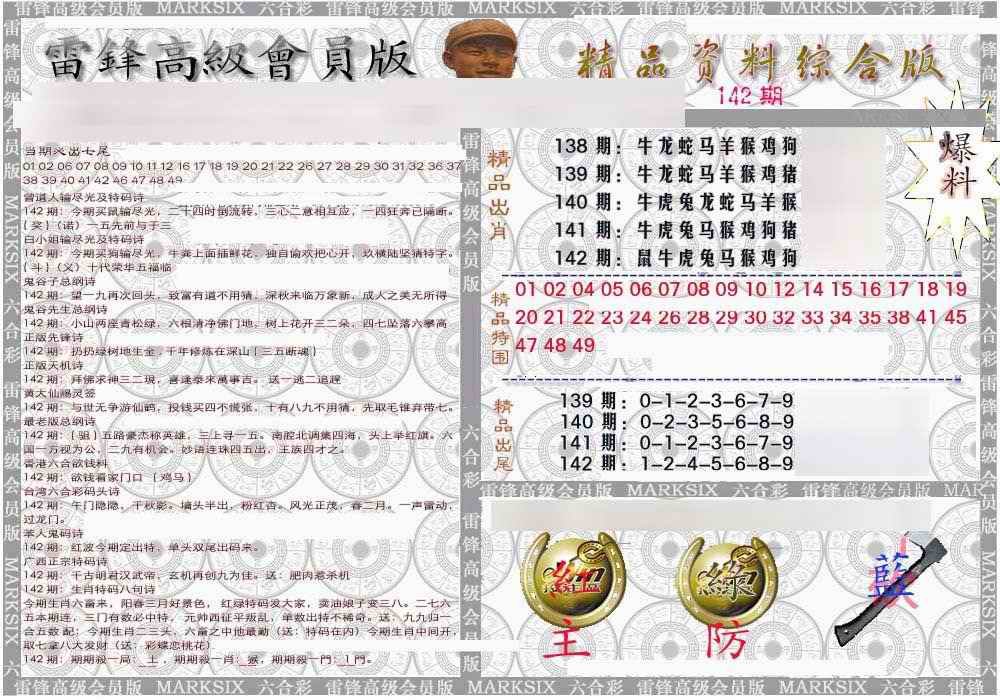 雷锋高级会员版 MARKSIX 六合彩 雷锋高级会员版 MARKSIX 六合彩 雷锋高级会员版 MARKSIX 六合彩 雷锋高级会员版
雷鋒高級會員版
精品资料综合版
142 期
当期爻出七尾
01 02 06 07 08 09 10 11 12 16 17 18 19 20 21 22 26 27 28 29 30 31 32 36 37
38 39 40 41 42 46 47 48 49
曾道人输尽光及特码诗
142 期：今期买鼠输尽光，二十四时倒流转。三心二意相互应，一四狂奔已隔断。
{ 奖}（诺）一五先前与于三
白小姐输尽光及特码诗
142 期：今期买狗输尽光，牛粪上面插鲜花，独自偷欢把心开，玖横陆坚猜特字。
{ 斗}（义）十代荣华五福临
鬼谷子总纲诗
142 期：望一九再次回头，致富有道不用猜，深秋来临万象新，成人之美无所得
鬼谷先生总纲诗
142 期：小山两座青松绿，六根清净佛门地，树上花开三二朵，四七坠落六攀高
正版先锋诗
142 期：扔扔绿树地生金，千年修炼在深山 { 三五断魂 }
正版天机诗
142 期：拜佛求神三二現，喜逢泰來萬事吉。 送一逃二追趕
黄大仙赐灵签
142 期：与世无争游仙鹤，投钱买四不慌张，十有八九不用猜，先取毛锥弃带七。
最老版总纲诗
142 期：{ 驵 } 五路豪杰称英雄，三上寻一五。南腔北调集四海，头上举红旗。六
国一万视为公，二九有机会。妙语连珠四五出，王族四才之。
香港六合欲钱料
142 期：欲钱看家门口 { 鸡马 }
台湾六合彩码头诗
142 期：午门隐隐，千秋影。墙头半出，粉红杏。风光正茂，春二月。一声雷动，
过龙门。
苯人鬼码诗
142 期：红波今期定出特，单头双尾出码来。
广西正宗特码诗
142 期：千古明君汉武帝，玄机再创九为佳。送：肥肉惹杀机
142 期：生肖特码八句诗
今期生肖六畜来，阳春三月好景色， 红绿特码发大家，卖油娘子变三八。二七六
五本期连，三门有数必中特， 元帅西征平叛乱，单数出特不稀奇。送：九九归一
合五数配：今期生肖二三头，六畜之中他最勤（送：特码在内）今期生肖中间开，
取七拿八大发财（送：彩蝶恋桃花）
142 期：期期殺一局：土，期期殺一肖：猴，期期殺一門：1門。
精品出肖
138 期：牛龙蛇马羊猴鸡狗
139 期：牛龙蛇马羊猴鸡猪
140 期：牛虎兔龙蛇马羊猴
141 期：牛虎兔马猴鸡狗猪
142 期：鼠牛虎兔马猴鸡狗
爆料
精品特围
01 02 04 05 06 07 08 09 10 12 14 15 16 17 18 19
20 21 22 23 24 26 28 29 30 32 33 34 35 38 41 45
47 48 49
精品出尾
139 期：0-1-2-3-6-7-9
140 期：0-2-3-5-6-8-9
141 期：0-1-2-3-6-7-9
142 期：1-2-4-5-6-8-9
雷锋高级会员版 MARKSIX 六合彩 雷锋高级会员版
紅 綠 藍
主 防
雷锋高级会员版 MARKSIX 六合彩 雷锋高级会员版 MARKSIX 六合彩 雷锋高级会员版 MARKSIX 六合彩 雷锋高级会员版